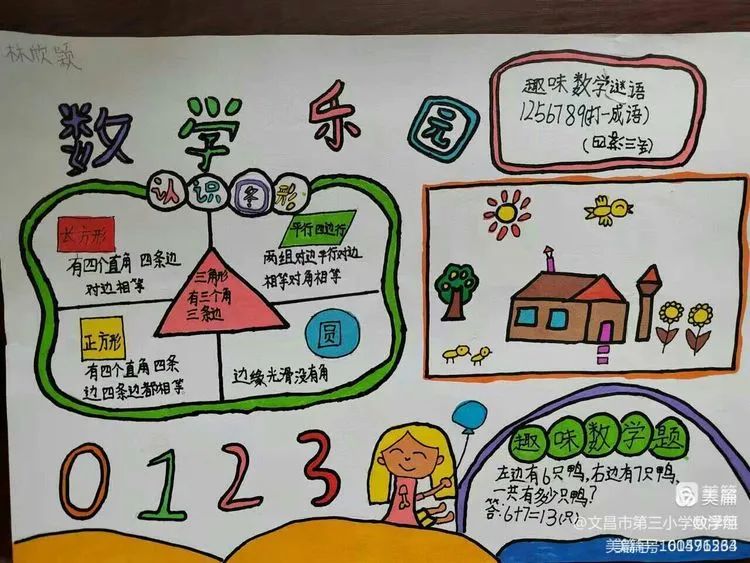 林欣颖
数学乐园
趣味数学谜语
1256789(打一成语)
(丢三落四)
认识图形
长方形
有四个直角 四条边
对边相等
平行四边行
两组对边平行对边
相等对角相等
三角形
有三个角
三条边
正方形
有四个直角四条
边四条边都相等
圆
边缘光滑没有角
0 1 2 3
趣味数学题
左边有6只鸭,右边有7只鸭,
一共有多少只鸭?
答:6+7=13(只)
美篇
@文昌市第三小学
美篇号: